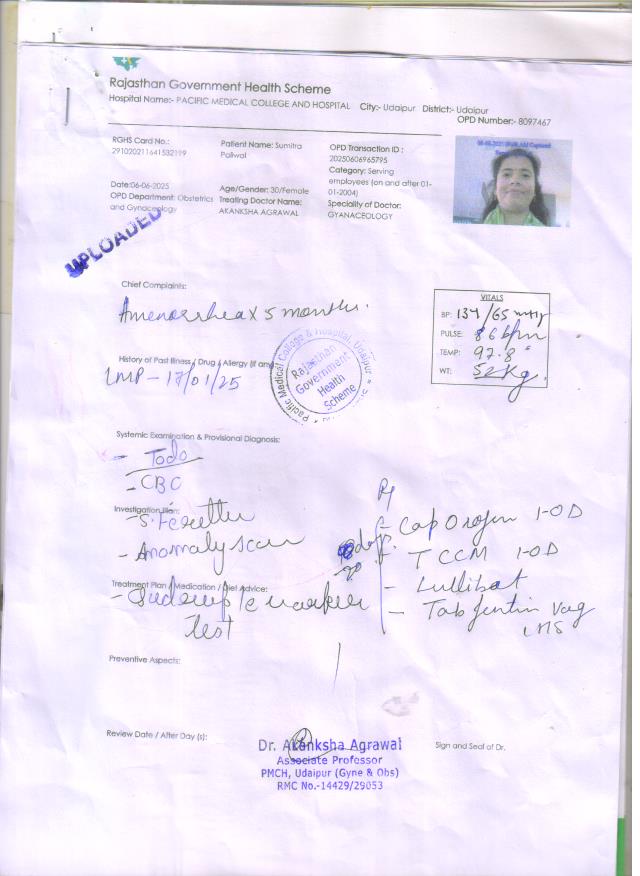 Rajasthan Government Health Scheme
Hospital Name:- PACIFIC MEDICAL COLLEGE AND HOSPITAL City:- Udaipur District:- Udaipur
OPD Number:- 8097467
RGHS Card No.:
291020211641532199
Patient Name: Sumitra
Paliwal
OPD Transaction ID :
20250606965795
Category: Serving
employees (on and after 01-
01-2004)
Date:06-06-2025
OPD Department: Obstetrics
and Gynaecology
Age/Gender: 30/Female
Treating Doctor Name:
AKANKSHA AGRAWAL
Speciality of Doctor:
GYNAECOLOGY
UPLOADED
Chief Complaints:
Amenorrhea X 5 months.
VITALS
BP: 134/65 mmHg
PULSE: 86 bpm
TEMP: 97.8°
WT: 52 Kg.
History of Past Illness / Drug / Allergy (if any)
LMP - 17/01/25
Pacific Medical College & Hospital, Udaipur
Rajasthan
Government
Health
Scheme
Systemic Examination & Provisional Diagnosis:
- Todo
- CBC
Investigation Plan:
- S. Ferritin
- Anomaly scan
Treatment Plan / Medication / Diet Advice:
marker
Test
Rx
- Cap 1-OD
T CCM 1-OD
- Tab Vag
Preventive Aspects:
Review Date / After Day (s):
Dr. Akanksha Agrawal
Associate Professor
PMCH, Udaipur (Gyne & Obs)
RMC No.-14429/29053
Sign and Seal of Dr.